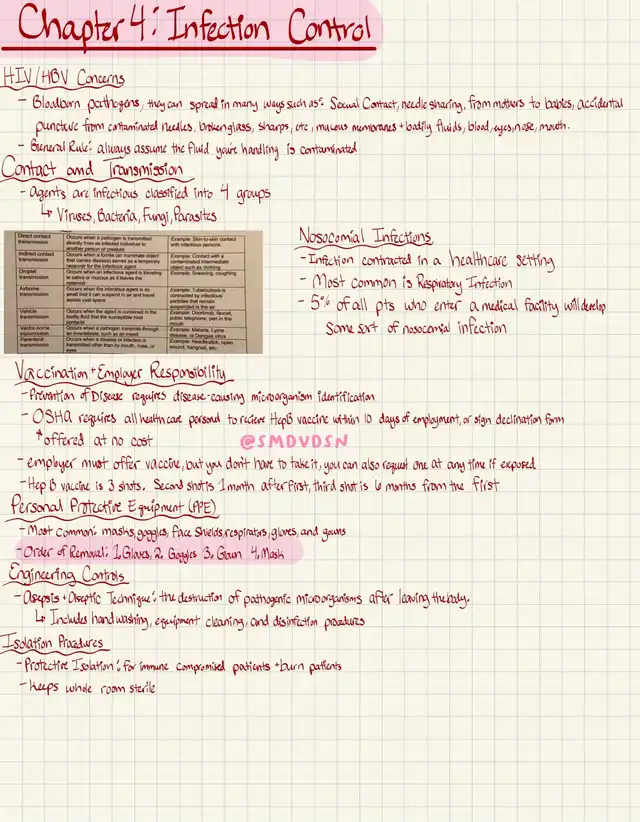 Chapter 4: Infection Control
HIV/HBV Concerns
- Bloodborn pathogens, they can spread in many ways such as: Sexual Contact, needle sharing, from mothers to babies, accidental
puncture from contaminated needles, broken glass, sharps, etc, mucous membranes + bodily fluids, blood, eyes, nose, mouth.
- General Rule: always assume the fluid you're handling is contaminated
Contact and Transmission
- Agents are infectious classified into 4 groups
↳ Viruses, Bacteria, Fungi, Parasites
Direct contact transmission Occurs when a pathogen is transmitted directly from an infected individual to another person or creature Example: Skin-to-skin contact with infectious persons
Indirect contact transmission Occurs when a fomite (an inanimate object that carries disease) serves as a temporary reservoir for the infectious agent Example: Contact with a contaminated intermediate object such as clothing
Droplet transmission Occurs when an infectious agent is traveling in saliva or mucous as it leaves the reservoir Example: Sneezing, coughing
Airborne transmission Occurs when the infectious agent is so small that it can suspend in air and travel across vast space Example: Tuberculosis is contracted by infectious particles that remain suspended in the air
Vehicle transmission Occurs when the agent is contained in the bodily fluid that the susceptible host contacts Example: Doorknob, faucet, public telephone, pen in the mouth
Vector-borne transmission Occurs when a pathogen transmits through an invertebrate, such as an insect Example: Malaria, Lyme disease, or Dengue virus
Parenteral transmission Occurs when a disease or infection is transmitted other than by mouth, nose, or eyes Example: Needlestick, open wound, hangnail, etc.
Nosocomial Infections
- Infection contracted in a healthcare setting
- Most common is Respiratory Infection
- 5% of all pts who enter a medical facility will develop
some sort of nosocomial infection
Vaccination + Employer Responsibility
- Prevention of Disease requires disease-causing microorganism identification
- OSHA requires all healthcare personal to recieve HepB vaccine within 10 days of employment, or sign declination form
* offered at no cost
@SMDVDSN
- employer must offer vaccine, but you don't have to take it, you can also request one at any time if exposed
- Hep B vaccine is 3 shots. Second shot is 1 month after first, third shot is 6 months from the first
Personal Protective Equipment (PPE)
- Most Common: masks, goggles, face shields, respirators, gloves, and gowns
- Order of Removal: 1. Gloves, 2. Goggles 3. Gown 4. Mask
Engineering Controls
- Asepsis + Aseptic Technique: the destruction of pathogenic microorganisms after leaving the body.
↳ Includes hand washing, equipment cleaning, and disinfection procedures
Isolation Procedures
- Protective Isolation: for immune compromised patients + burn patients
- Keeps whole room sterile